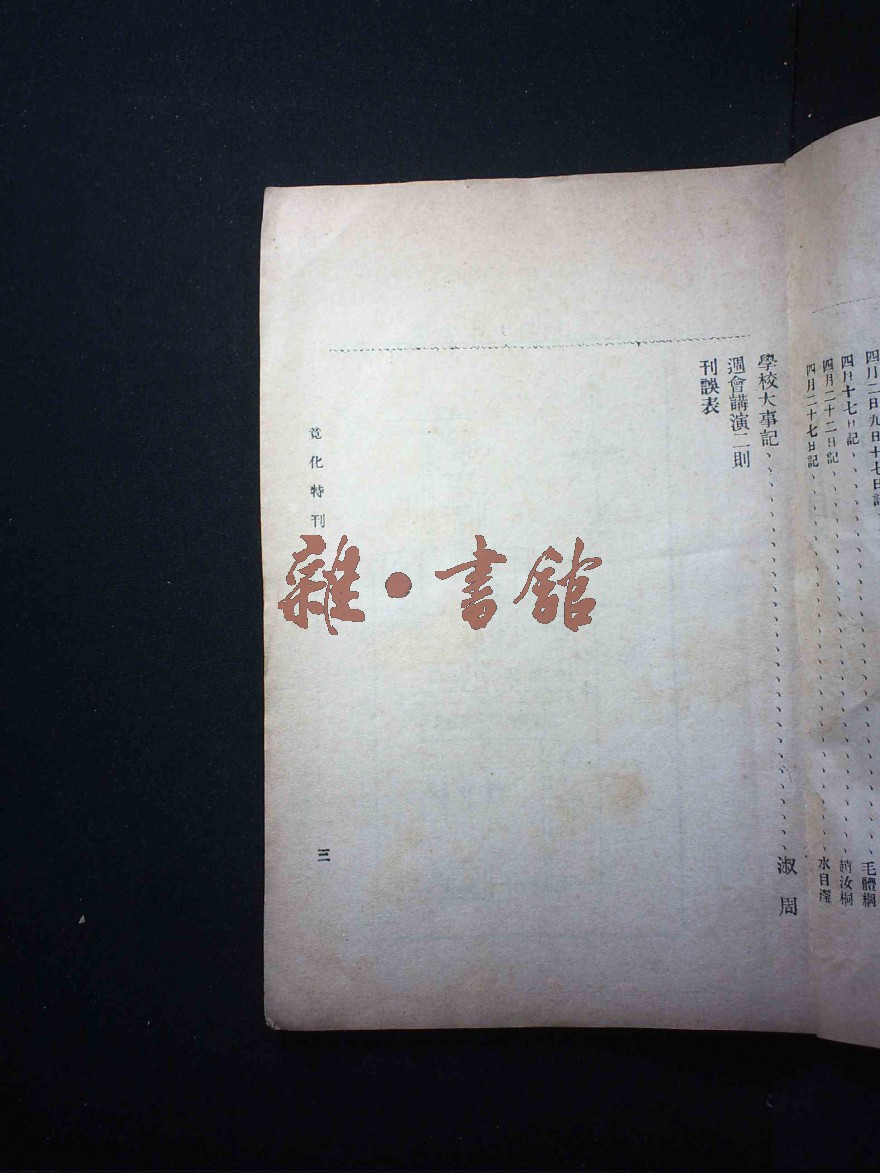 四月二日九日十七日記、、、、、、、、、、、、毛體綱
四月十七日記、、、、、、、、、、、、、、、、趙汝桐
四月二十二日記、、、、、、、、、、、、、、、水目澄
四月二十七日記
學校大事記、、、、、、、、、、、、、、、、、淑周
週會講演二則
刊誤表
竞化特刊
三
雜·書館